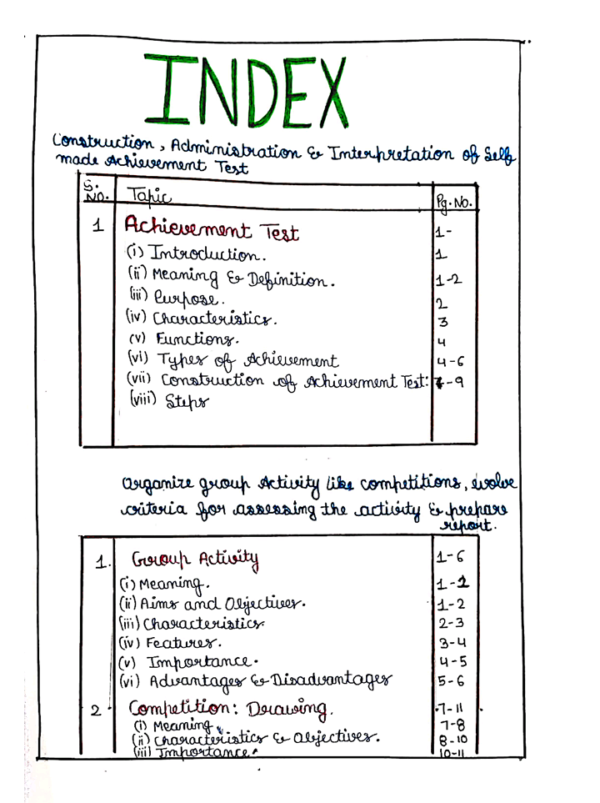 INDEX
Construction, Administration & Interpretation of Self
made Achievement Test
S. No. Topic Pg. No.
1 Achievement Test 1-
(i) Introduction. 1
(ii) Meaning & Definition. 1-2
(iii) Purpose. 2
(iv) Characteristics. 3
(v) Functions. 4
(vi) Types of Achievement 4-6
(vii) Construction of Achievement Test: 7-9
(viii) Steps
Organize group Activity like competitions, evolve
criteria for assessing the activity & prepare
report.
1. Group Activity 1-6
(i) Meaning. 1-1
(ii) Aims and Objectives. 1-2
(iii) Characteristics 2-3
(iv) Features. 3-4
(v) Importance. 4-5
(vi) Advantages & Disadvantages 5-6
2 Competition: Drawing. 7-11
(i) Meaning. 7-8
(ii) Characteristics & Objectives. 8-10
(iii) Importance. 10-11